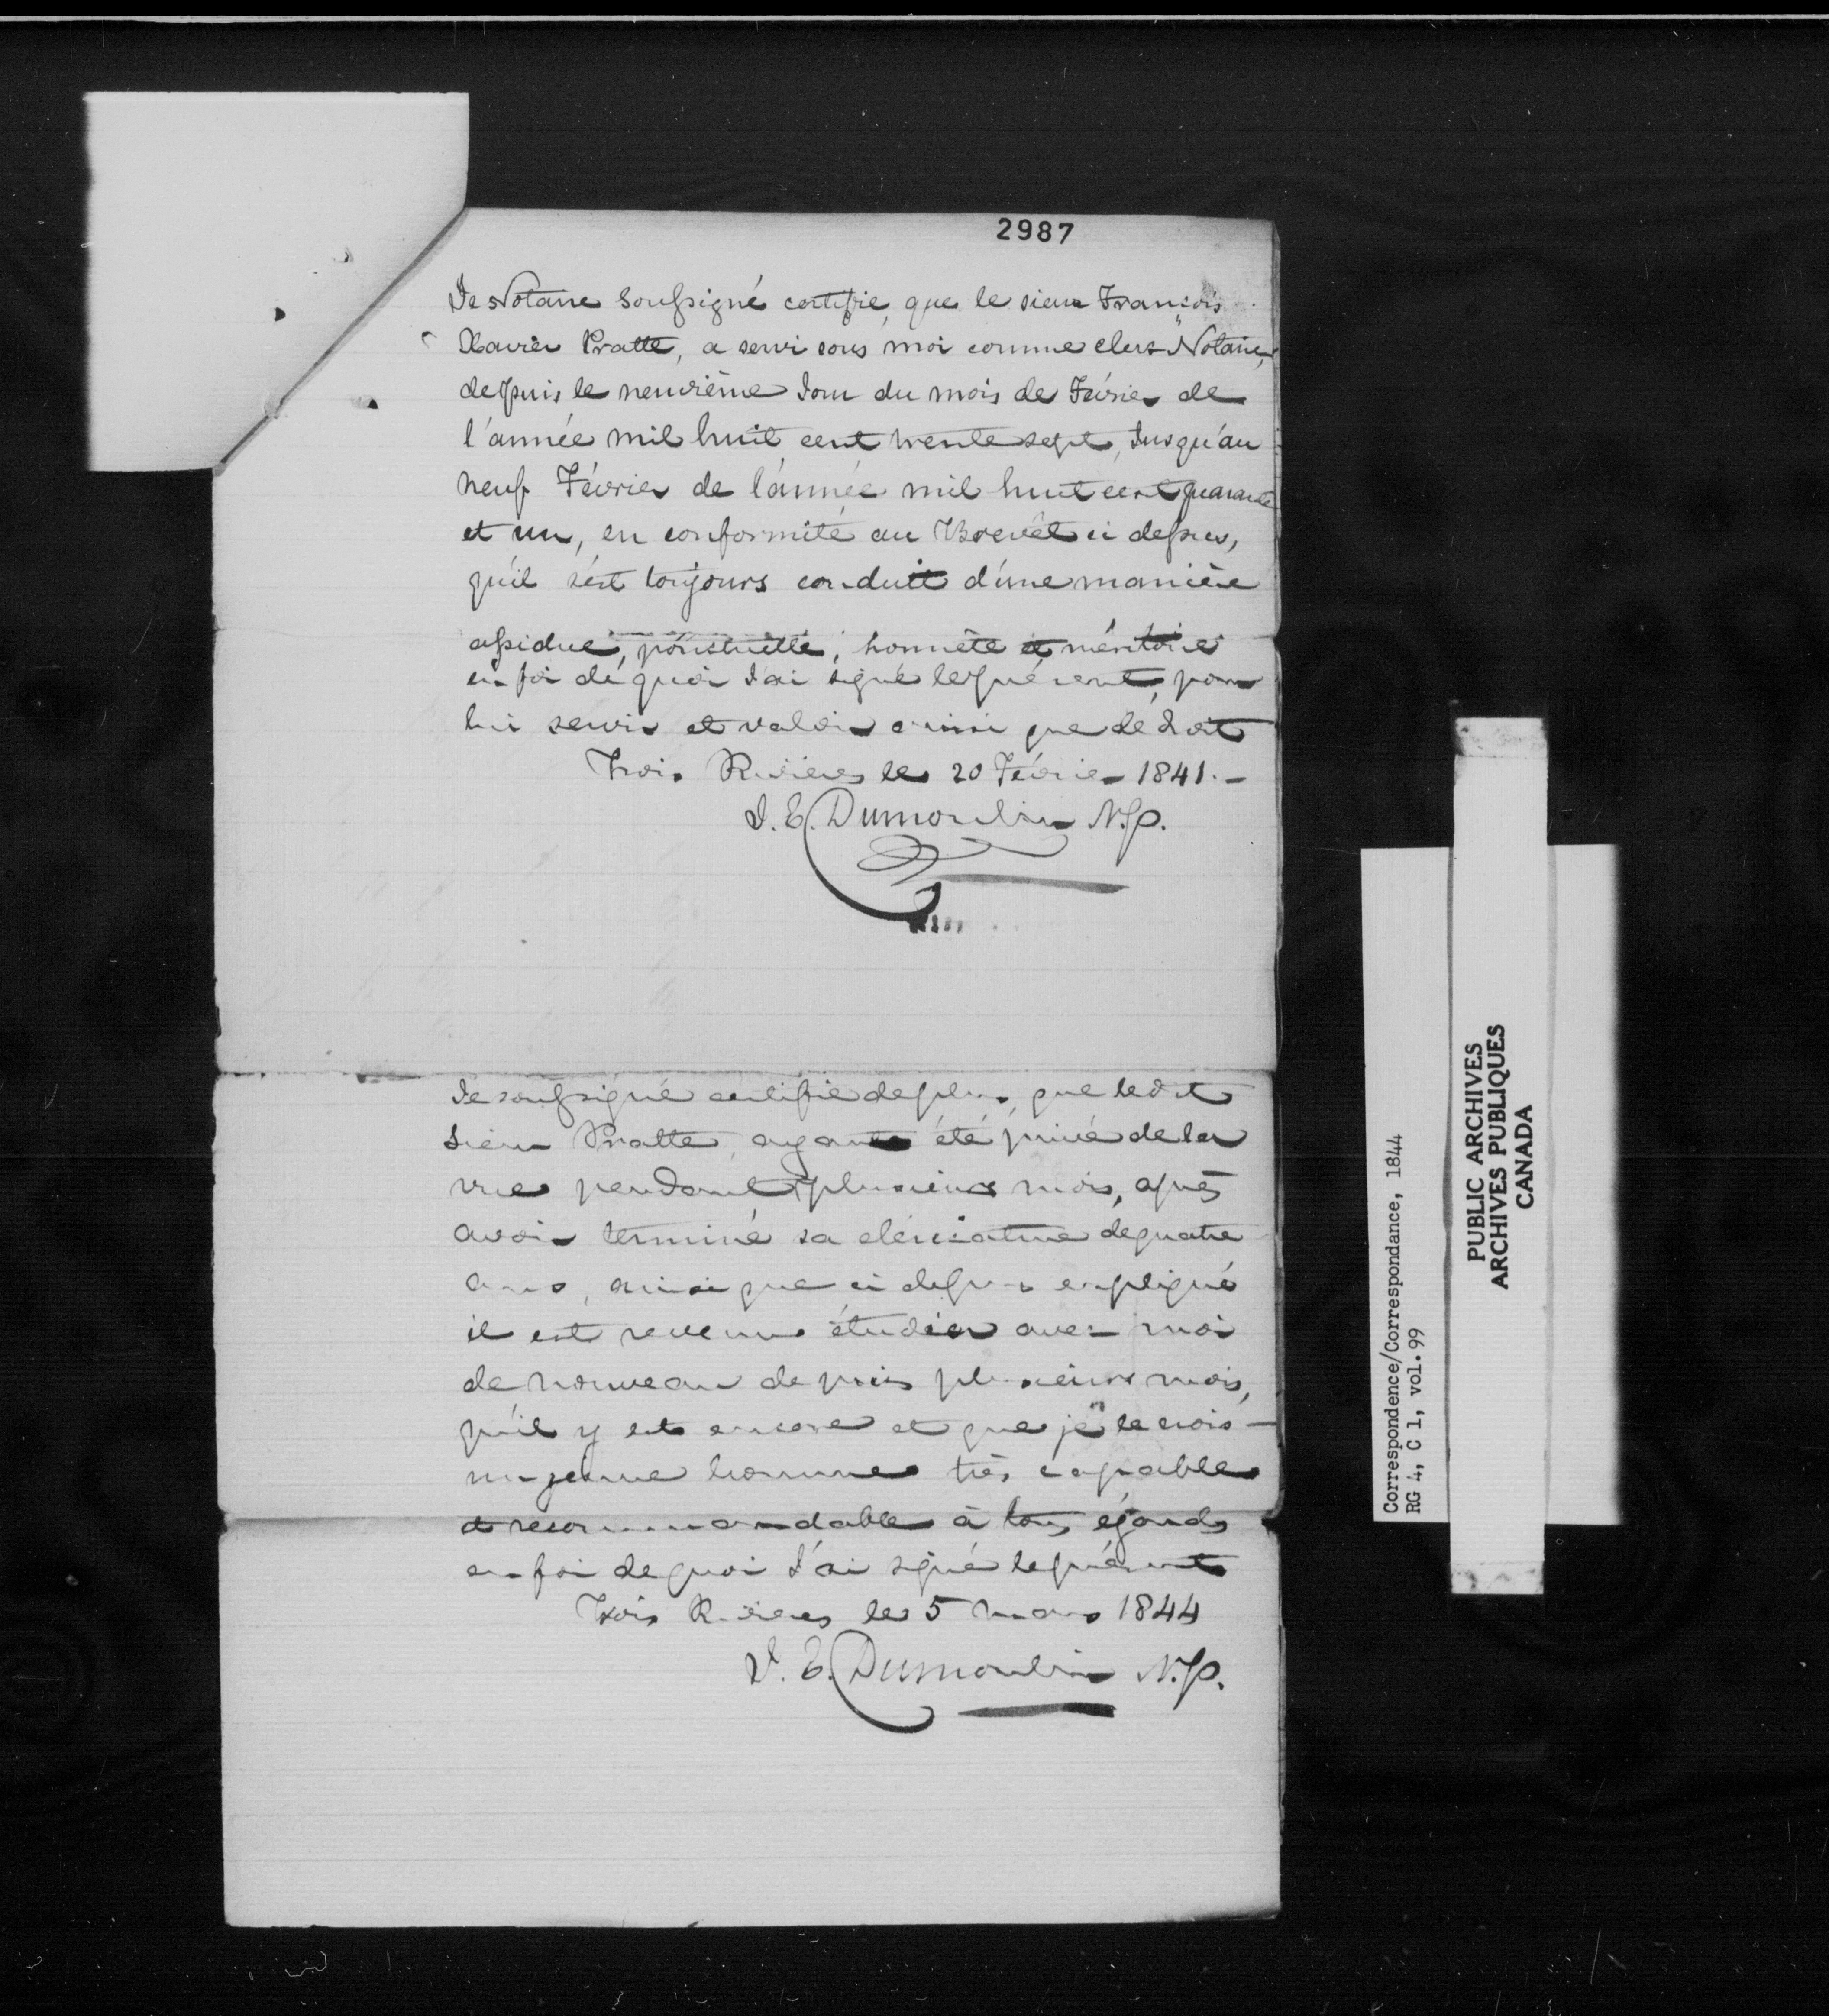 2987
Je Notaire Soussigné certifie, que le sieur François
Xavier Pratte, a servi sous moi comme clerc Notaire,
depuis le neuvième Jour du mois de Février de
l'année mil huit cent trente sept, Jusqu'au
neuf Février de l'année mil huit cent quarante
et un, en conformité au Brevêt ci dessus,
qu'il s'est toujours conduit d'une manière
assidue, ponctuelle, honnête et méritoire
en foi de quoi J'ai signé le présent, pour
lui servir et valoir ainsi que de droit
Trois Rivieres le 20 Février 1841.-
J. E. Dumoulin N.P.
Je soussigné certifie de plus, que le dit
Sieur Pratte, ayant été privé de la
vue pendant plusieurs mois, après
avoir terminé sa cléricature de quatre
ans, ainsi que ci dessus expliqué
il est revenu étudier avec moi
de nouveau depuis plusieurs mois,
qu'il y est encore et que je le crois -
un jeune homme très capable
et recommandable à tous égards
en foi de quoi J'ai signé le présent
Trois Rivieres le 5 mars 1844
J. E. Dumoulin N.P.
Correspondence/Correspondance, 1844
RG 4, C 1, vol. 99
PUBLIC ARCHIVES
ARCHIVES PUBLIQUES
CANADA